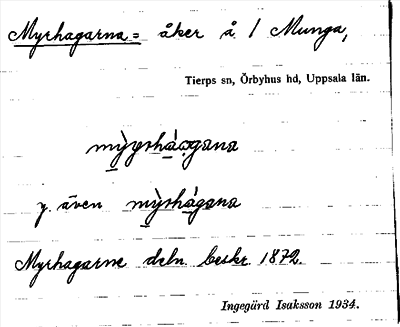 Myrhagarna = åker å 1 Munga,
Tierps sn, Örbyhus hd, Uppsala län.
mỳyrhàgana
y. även mỳrhàgana
Myrhagarne deln. beskr. 1872.
Ingegärd Isaksson 1934.